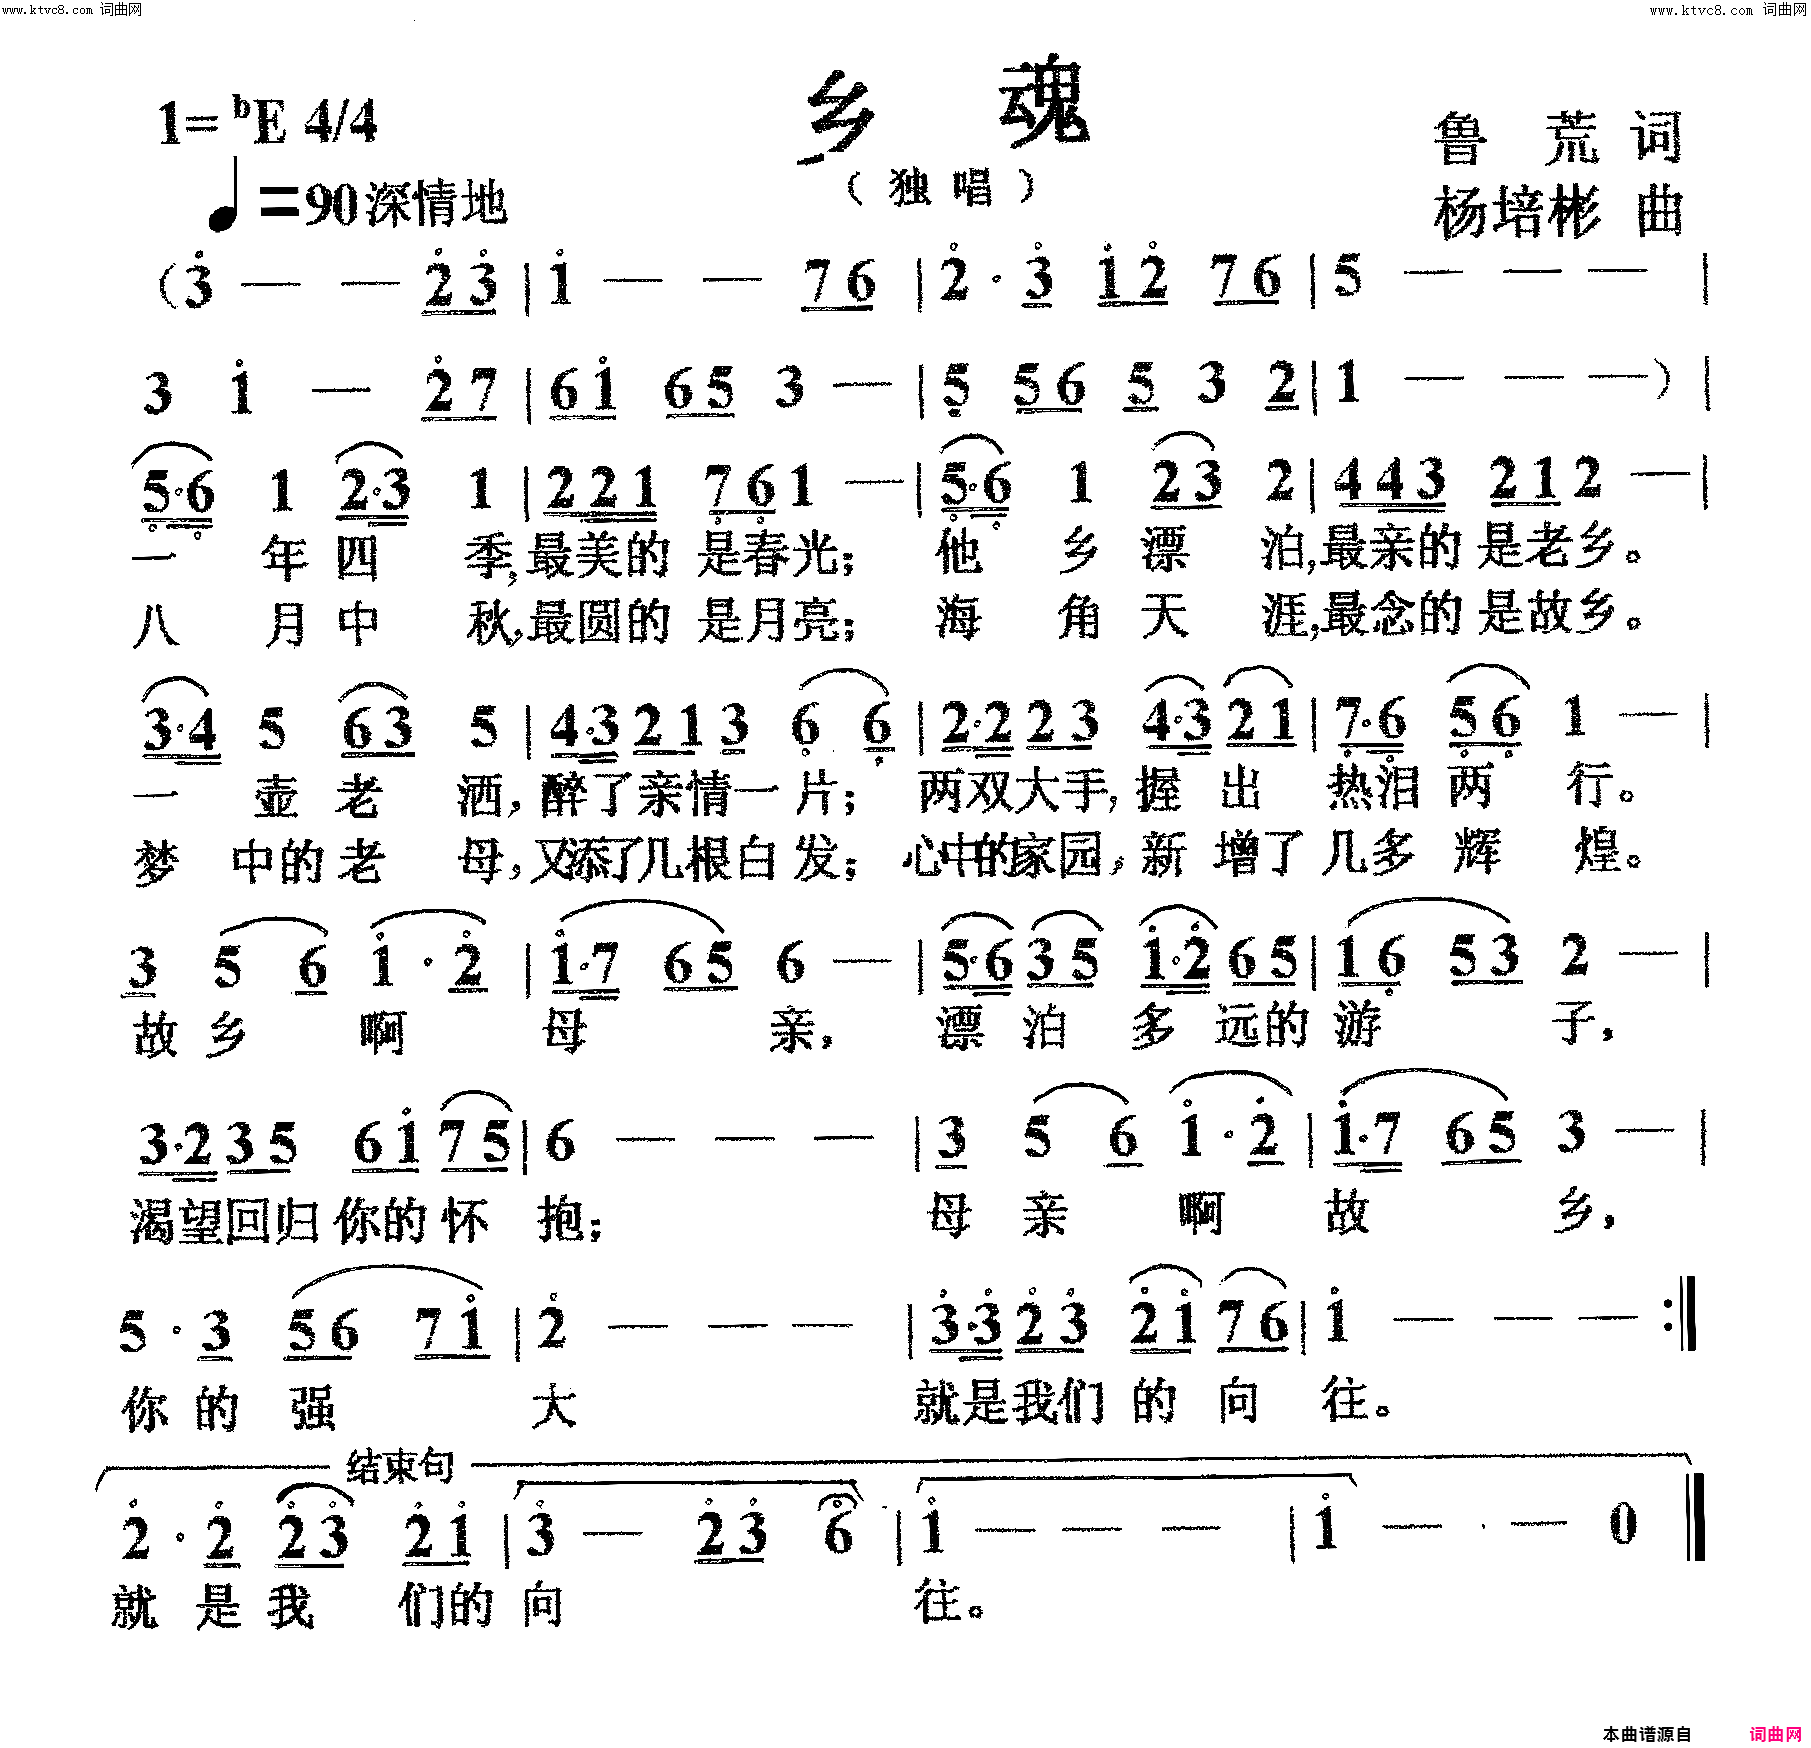 www.ktvc8.com 词曲网
www.ktvc8.com 词曲网
乡 魂
(独唱)
1= ♭E 4/4
♩=90 深情地
鲁 荒 词
杨培彬 曲
(3̇ — — 2̇ 3̇ | 1̇ — — 7 6 | 2̇ · 3̇ 1̇ 2̇ 7 6 | 5 — — — |
3 1̇ — 2̇ 7 | 6 1̇ 6 5 3 — | 5̣ 5 6 5 3 2 | 1 — — —) |
5̣·6̣ 1 2·3 1 | 2 2 1 7̣ 6̣ 1 — | 5̣·6̣ 1 2 3 2 | 4 4 3 2 1 2 — |
一 年 四 季,最美的 是春光; 他 乡 漂 泊,最亲的 是老乡。
八 月 中 秋,最圆的 是月亮; 海 角 天 涯,最念的 是故乡。
3·4 5 6 3 5 | 4·3 2 1 3 6̣ 6̣ | 2·2 2 3 4·3 2 1 | 7̣·6̣ 5̣ 6̣ 1 — |
一 壶 老 洒,醉了亲情一 片; 两双大手,握 出 热泪两 行。
梦 中的 老 母,又添了几根白 发; 心中的家园,新 增了 几多 辉 煌。
3 5 6 1̇ · 2̇ | 1̇·7 6 5 6 — | 5·6 3 5 1̇·2̇ 6 5 | 1 6̣ 5 3 2 — |
故 乡 啊 母 亲, 漂 泊 多 远的 游 子,
3·2 3 5 6 1̇ 7 5 | 6 — — — | 3 5 6 1̇ · 2̇ | 1̇·7 6 5 3 — |
渴望回归 你的 怀 抱; 母 亲 啊 故 乡,
5 · 3 5 6 7 1̇ | 2̇ — — — | 3̇·3̇ 2̇ 3̇ 2̇ 1̇ 7 6 | 1̇ — — — :‖
你 的 强 大 就是我们 的 向 往。
结束句
2̇ · 2̇ 2̇ 3̇ 2̇ 1̇ | 3̇ — 2̇ 3̇ 6̇ | 1̇ — — — | 1̇ — — 0 ‖
就 是 我 们的 向 往。
本曲谱源自 词曲网